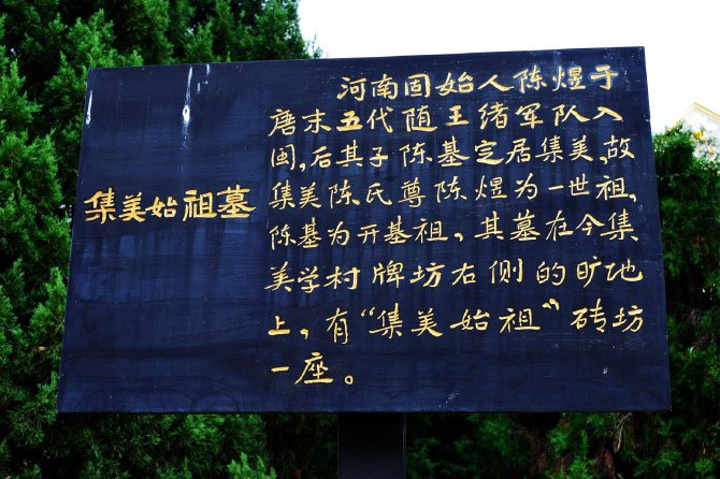 集美始祖墓
河南固始人陈煜于
唐末五代随王绪军队入
闽，后其子陈基定居集美、故
集美陈氏尊陈煜为一世祖，
陈基为开基祖，其墓在今集
美学村牌坊右侧的旷地
上，有“集美始祖”砖坊
一座。